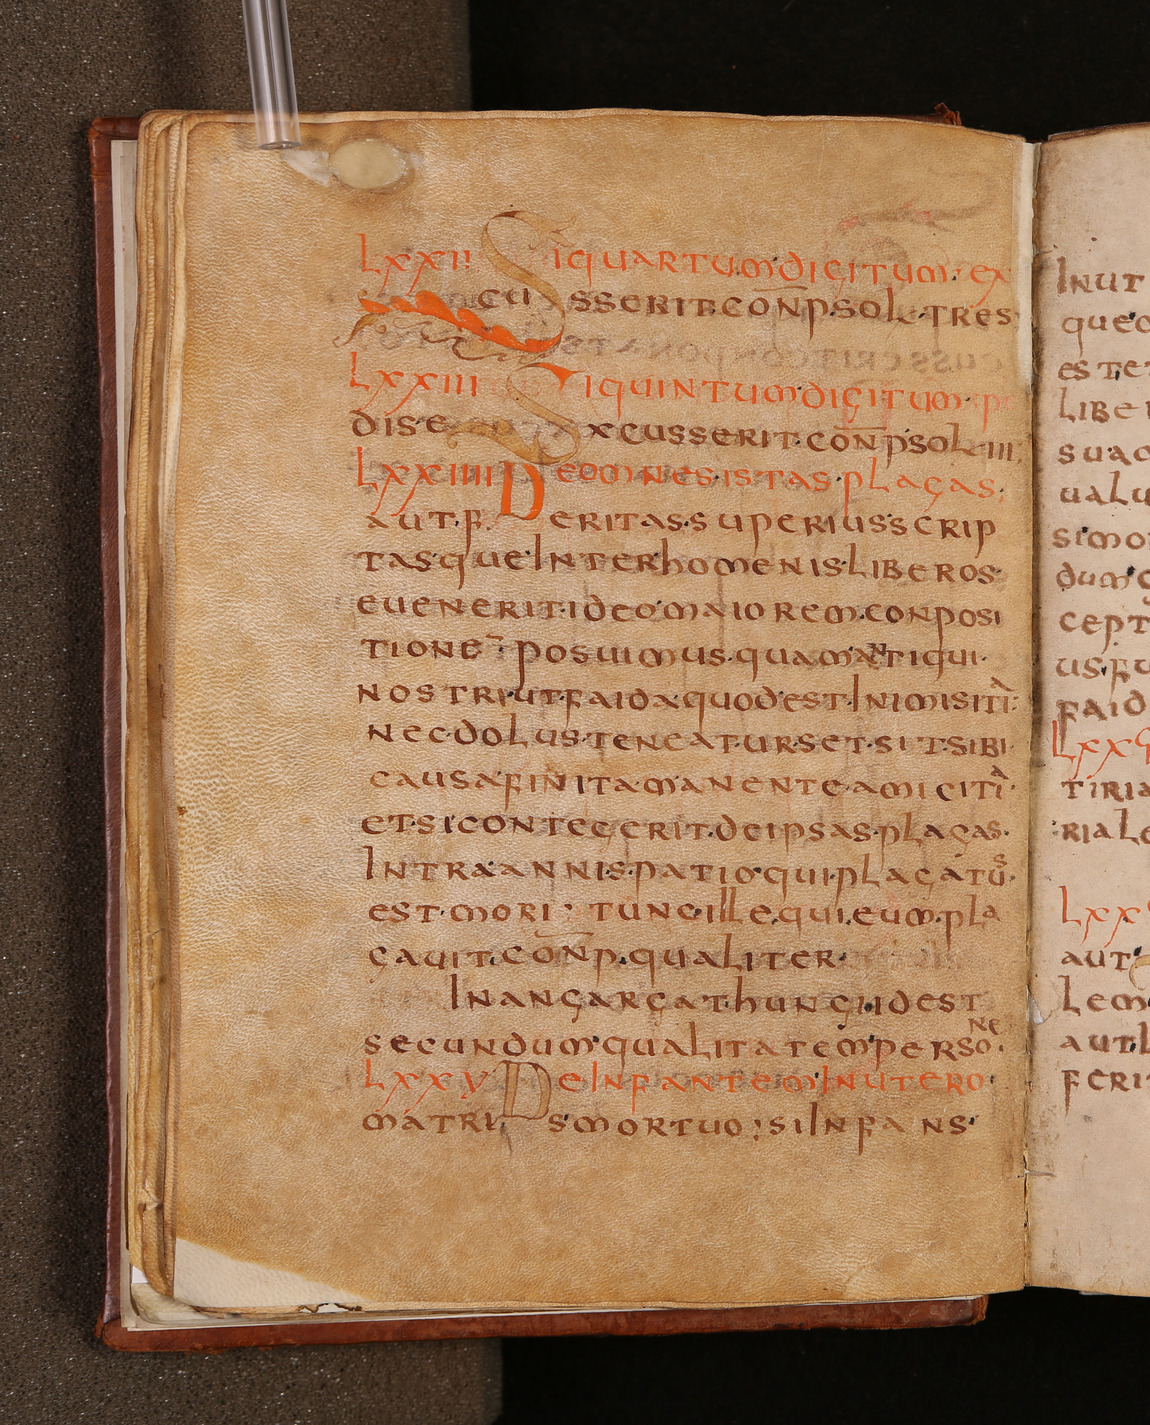 LXXII SIQUARTUM·DIGITUM·EX
CUSSERIT·CONP·SOL·TRES
LXXIII SIQUINTUM·DIGITUM·P
DIS·EXCUSSERIT·CONP·SOL·III·
LXXIIII DEOMNES·ISTAS·PLAGAS·
AUT·F·ERITAS·SUPERIUS·SCRIP
TAS·QUEINTERHOMENIS·LIBEROS·
EUENERIT·IDEO·MAIOREM·CONPOSI
TIONE POSUIMUS·QUAMANTIQUI·
NOSTRI·UT·FAIDA·QUOD·EST·INIMISITIA·
NEC·DOLUS·TENEATUR·SET·SIT·SIBI·
CAUSA·FINITA·MANENTE·AMICITIA
ET·SICONTEGERIT·DEIPSAS·PLAGAS·
INTRA·ANNI·SPATIO·QUI·PLAGATUS·
EST·MORI· TUNC·ILLE·QUI·EUM·PLA
GAUIT·CONP·QUALITER·
INANGARGATHUNGI·IDEST
SECUNDUM·QUALITATEM·PERSONE·
LXXV DEINFANTEM·INUTERO·
MATRIS·MORTUO; SIINFANS·
INUT
ESTE
LIBE
SUAC
UALU
SIMO
DUM
CEPT
US·FU
FAID
TIRIA
RIALE
AUT
LEM
AUT·L
FERI